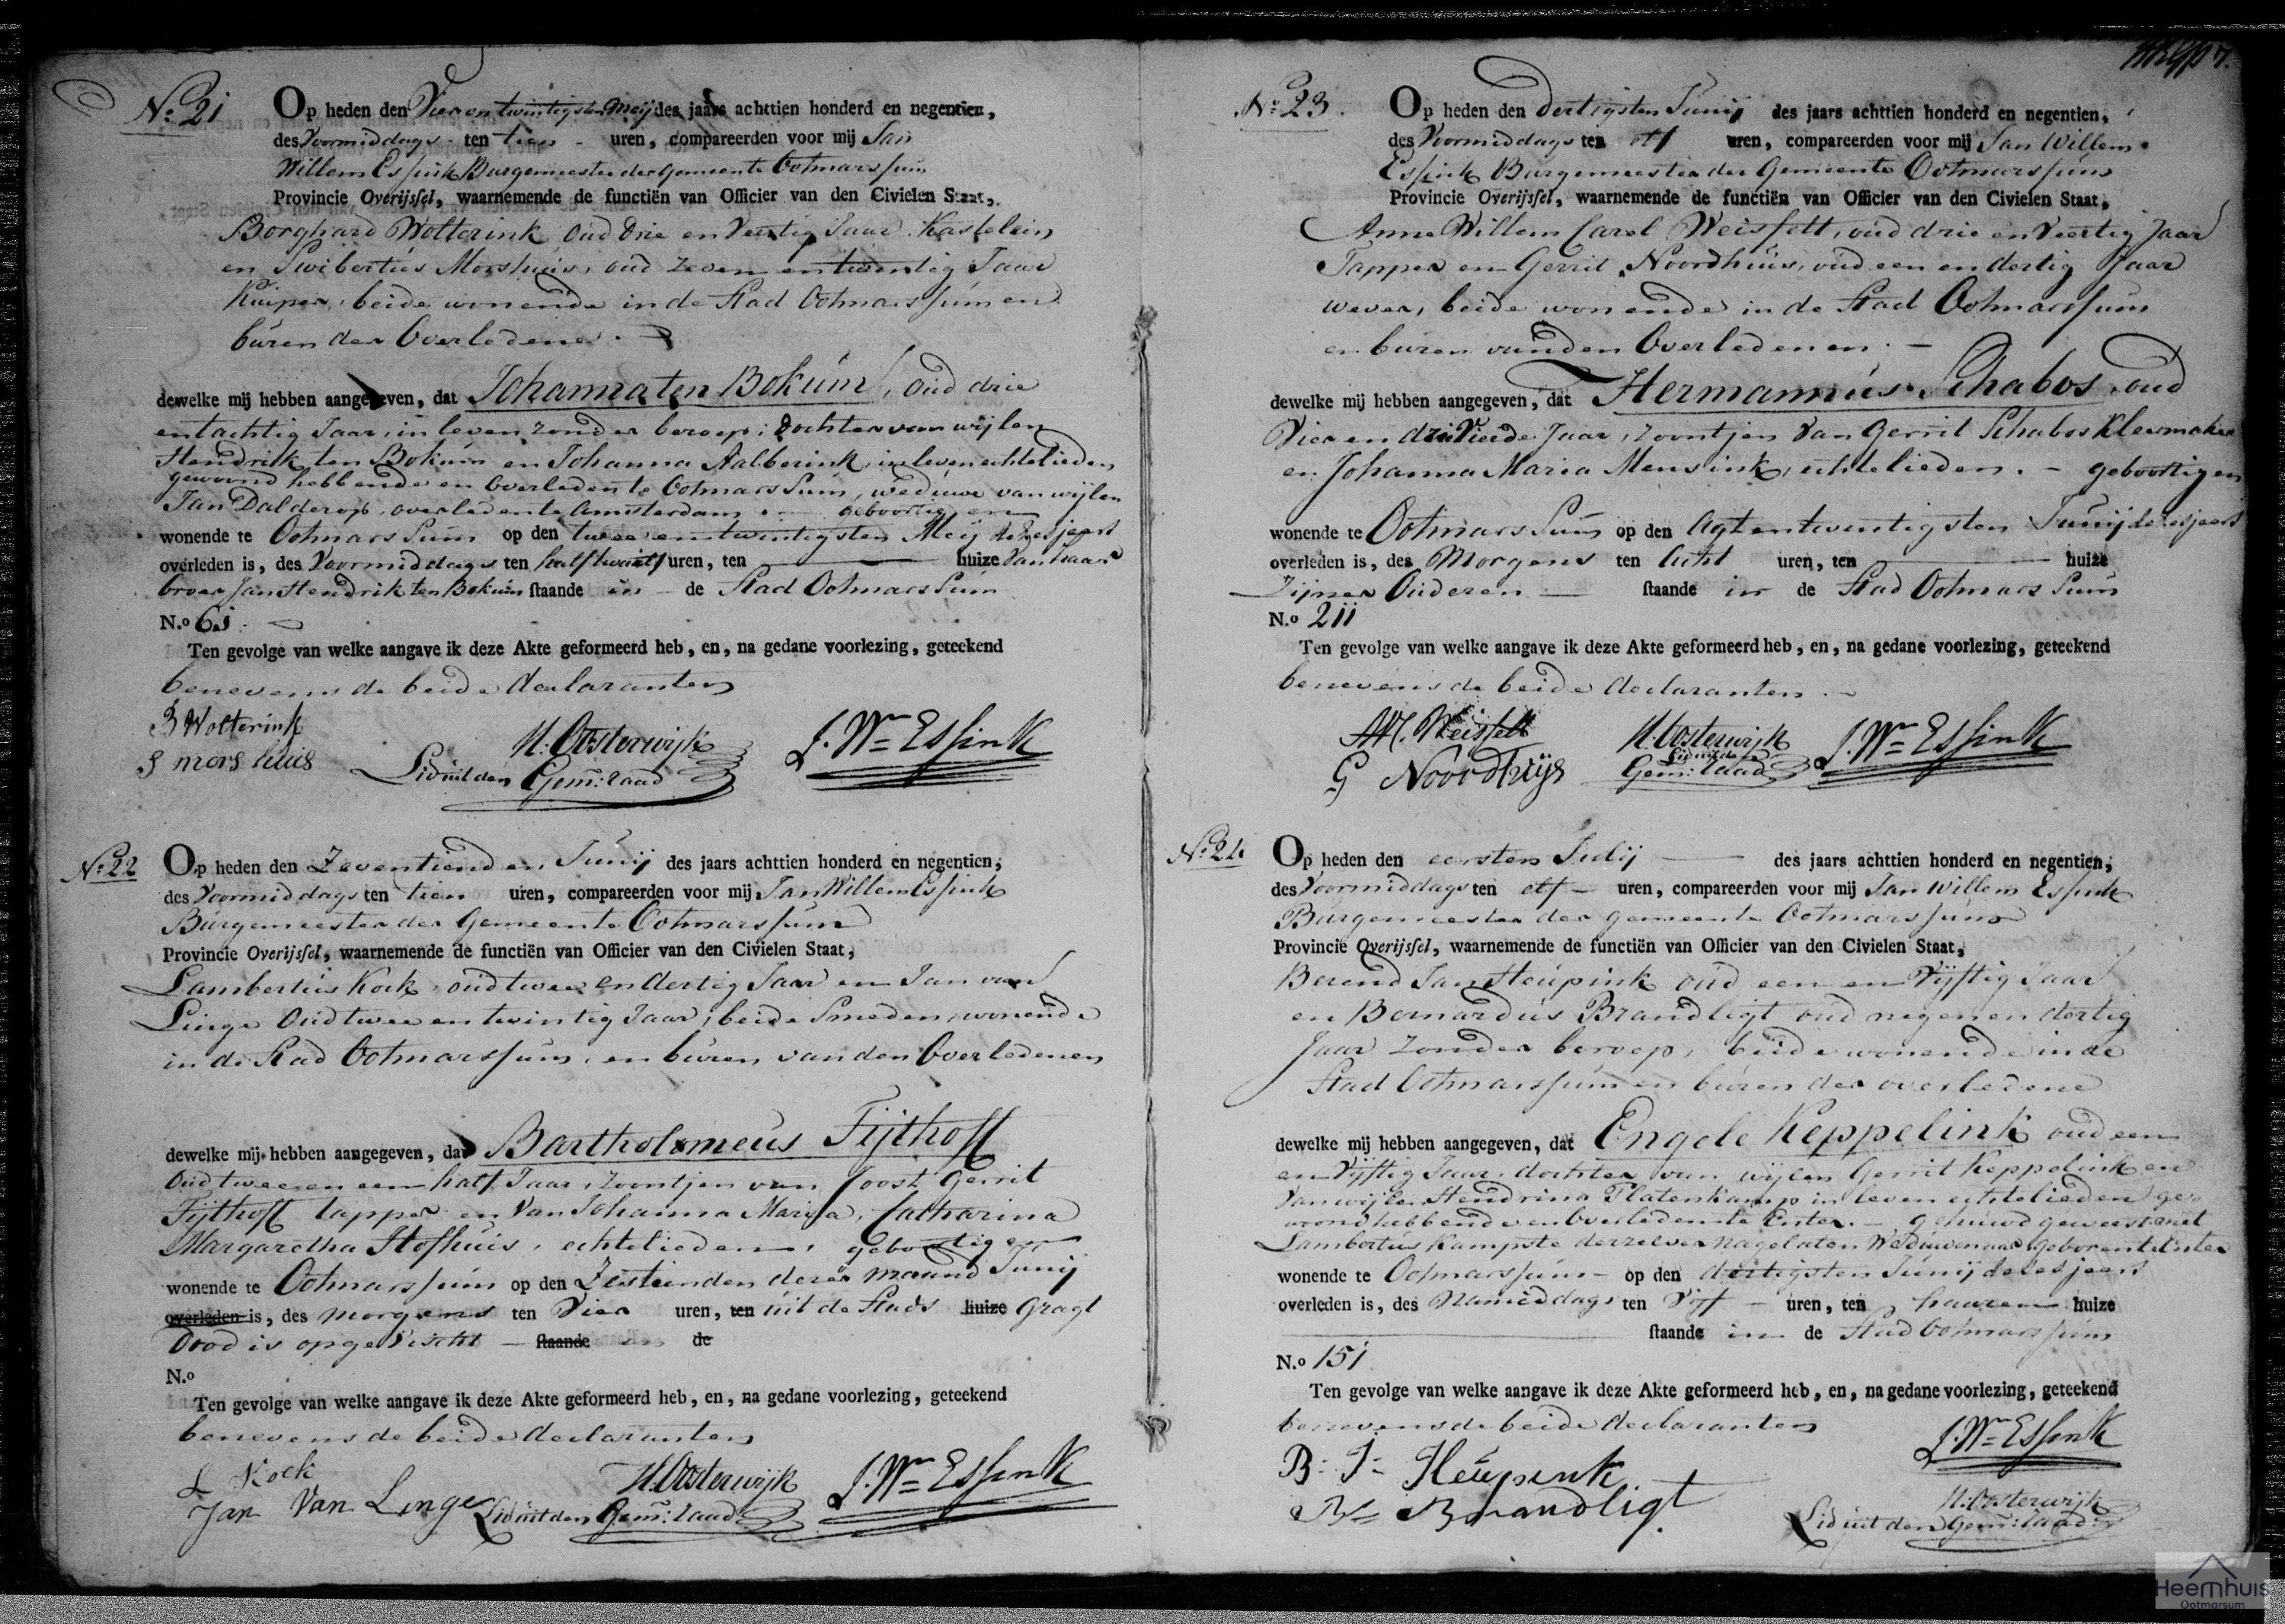 No 21
Op heden den Vier en twintigsten Meij des jaars achttien honderd en negentien,
des Voormiddags ten tien uren, compareerden voor mij Jan
Willem Essink Burgemeester der Gemeente Ootmarssum
Provincie Overijssel, waarnemende de functiën van Officier van den Civielen Staat,
Borghard Wolterink oud drie en Veertig Jaar Kastelein
en Swibertus Morshuis, oud zeven en twentig Jaar
Kuiper, beide wonende in de Stad Ootmarssum en
buren der Overledene.
dewelke mij hebben aangegeven, dat Johanna ten Bokum, oud drie
en tachtig Jaar, in leven zonder beroep; dochter van wijlen
Hendrik ten Bokum en Johanna Aalberink, in leven echtelieden
gewoond hebbende en Overleden te Ootmarssum, weduwe van wijlen
Jan Dalderop, overleden te Amsterdam geboortig en
wonende te Ootmarssum op den twee en twintigsten Meij dezes jaars
overleden is, des Voormiddags ten half twaalf uren, ten huize van haar
broer Jan Hendrik ten Bokum staande in de Stad Ootmarssum
N.o 61
Ten gevolge van welke aangave ik deze Akte geformeerd heb, en, na gedane voorlezing, geteekend
benevens de beide declaranten
B Wolterink
S mors huis
H: Oosterwijk
Lid uit den Gem: raad
J. Wm Essink
No 22
Op heden den Zeventienden Junij des jaars achttien honderd en negentien,
des Voormiddags ten tien uren, compareerden voor mij Jan Willem Essink
Burgemeester der Gemeente Ootmarssum
Provincie Overijssel, waarnemende de functiën van Officier van den Civielen Staat,
Lambertus Kock, oud twee en dertig Jaar en Jan van
Linge Oud twee en twintig Jaar, beide Smeden, wonende
in de Stad Ootmarssum, en buren van den Overledenen
dewelke mij hebben aangegeven, dat Bartholomeus Tijthoff
Oud twee en een half Jaar, zoontjen van Joost Gerrit
Tijthoff tapper en Van Johanna Maria, Catharina
Margaretha Hofhuis, echtelieden, geboortig en
wonende te Ootmarssum op den Zestienden dezer maand Junij
overleden is, des morgens ten Vier uren, ten uit de Stads huize gragt
Dood is opgevischt staande de
N.o
Ten gevolge van welke aangave ik deze Akte geformeerd heb, en, na gedane voorlezing, geteekend
benevens de beide declaranten
L Kock
Jan Van Linge
H. Oosterwijk
Lid uit den Gem: raad
J. Wm Essink
No 23.
Op heden den dertigsten Junij des jaars achttien honderd en negentien,
des Voormiddags ten elf uren, compareerden voor mij Jan Willem
Essink Burgemeester der Gemeente Ootmarssum
Provincie Overijssel, waarnemende de functiën van Officier van den Civielen Staat,
Anna Willem Carel Weisfelt, oud drie en Veertig Jaar
Tapper en Gerrit Noordhuis, oud een en dertig Jaar
wever, beide wonende in de Stad Ootmarssum
en buren van den Overledenen.
dewelke mij hebben aangegeven, dat Hermannus Schabos, oud
Vier en Jaar, zoontjen van Gerrit Schabos Kleermaker
en Johanna Maria Mensink, echtelieden. geboortig en
wonende te Ootmarssum op den Agtentwintigsten Junij dezes jaars
overleden is, des Morgens ten acht uren, ten huize
Zijner Ouderen staande in de Stad Ootmarssum
N.o 211
Ten gevolge van welke aangave ik deze Akte geformeerd heb, en, na gedane voorlezing, geteekend
benevens de beide declaranten.
Weisfelt
G Noordhuijs
H. Oosterwijk
Lid uit den
Gem: raad
J. Wm Essink
No 24
Op heden den eersten Julij des jaars achttien honderd en negentien,
des Voormiddags ten elf uren, compareerden voor mij Jan Willem Essink
Burgemeester der Gemeente Ootmarssum
Provincie Overijssel, waarnemende de functiën van Officier van den Civielen Staat,
Berend Jan Heupink oud een en Vijftig Jaar
en Bernardus Brandligt oud negen en dertig
Jaar zonder beroep, beide wonende in de
Stad Ootmarssum en buren der overledene
dewelke mij hebben aangegeven, dat Engele Keppelink oud een
en Vijftig Jaar, dochter van wijlen Gerrit Keppelink en
Van wijlen Hendrina Platenkamp in leven echtelieden ge-
woond hebbende en Overleden te Enter. gehuwd geweest met
Lambertus Kampste derzelver nagelaten Weduwenaar geboren te Enter
wonende te Ootmarssum op den dertigsten Junij dezes jaars
overleden is, des Namiddags ten Vijf uren, ten haaren huize
staande in de Stad Ootmarssum
N.o 151
Ten gevolge van welke aangave ik deze Akte geformeerd heb, en, na gedane voorlezing, geteekend
benevens de beide declaranten
B: J: Heupink
Bs Brandligt
J. Wm Essink
H. Oosterwijk
Lid uit den Gem: raad
Heemhuis
Ootmarsum